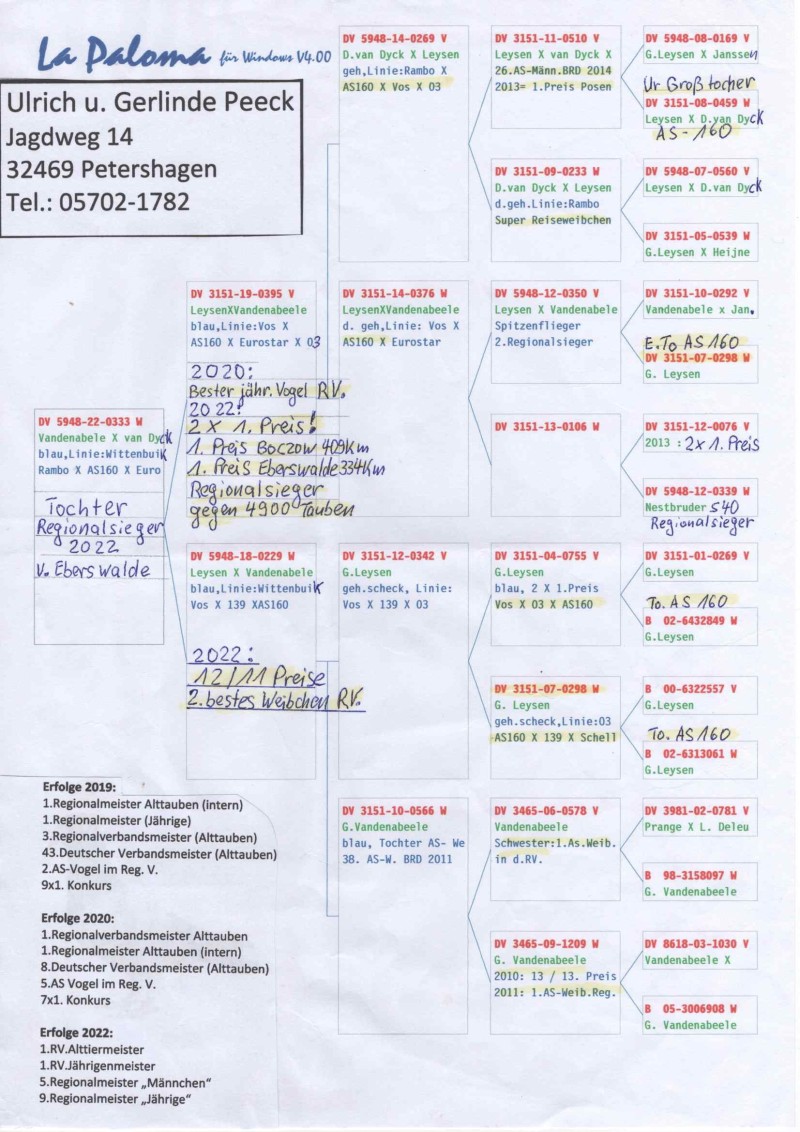 La Paloma für Windows V4.00
Ulrich u. Gerlinde Peeck
Jagdweg 14
32469 Petershagen
Tel.: 05702-1782
DV 5948-22-0333 W
Vandenabele X van Dyck
blau,Linie:Wittenbuik
Rambo X AS160 X Euro
Tochter
Regionalsieger
2022
v. Eberswalde
DV 3151-19-0395 V
LeysenXVandenabeele
blau,Linie:Vos X
AS160 X Eurostar X 03
2020:
Bester jähr. Vogel RV.
2022:
2 X 1. Preis!
1. Preis Boczow 409Km
1. Preis Eberswalde 334Km
Regionalsieger
gegen 4900 Tauben
DV 5948-18-0229 W
Leysen X Vandenabele
blau,Linie:Wittenbuik
Vos X 139 XAS160
2022:
12/11 Preise
2. bestes Weibchen RV.
DV 5948-14-0269 V
D.van Dyck X Leysen
geh,Linie:Rambo X
AS160 X Vos X 03
DV 3151-14-0376 W
LeysenXVandenabeele
d. geh,Linie: Vos X
AS160 X Eurostar
DV 3151-12-0342 V
G.Leysen
geh.scheck, Linie:
Vos X 139 X 03
DV 3151-10-0566 W
G.Vandenabeele
blau, Tochter AS- We
38. AS-W. BRD 2011
DV 3151-11-0510 V
Leysen X van Dyck X
26.AS-Männ.BRD 2014
2013= 1.Preis Posen
DV 3151-09-0233 W
D.van Dyck X Leysen
d.geh.Linie:Rambo
Super Reiseweibchen
DV 5948-12-0350 V
Leysen X Vandenabele
Spitzenflieger
2.Regionalsieger
DV 3151-13-0106 W
DV 3151-04-0755 V
G.Leysen
blau, 2 X 1.Preis
Vos X 03 X AS160
DV 3151-07-0298 W
G. Leysen
geh.scheck,Linie:03
AS160 X 139 X Schell
DV 3465-06-0578 V
Vandenabeele
Schwester:1.As.Weib.
in d.RV.
DV 3465-09-1209 W
G. Vandenabeele
2010: 13 / 13. Preis
2011: 1.AS-Weib.Reg.
DV 5948-08-0169 V
G.Leysen X Janssen
Ur Großtocher
DV 3151-08-0459 W
Leysen X D.van Dyck
AS-160
DV 5948-07-0560 V
Leysen X D.van Dyck
DV 3151-05-0539 W
G.Leysen X Heijne
DV 3151-10-0292 V
Vandenabele x Jan.
E.To AS 160
DV 3151-07-0298 W
G. Leysen
DV 3151-12-0076 V
2013 : 2x 1. Preis
DV 5948-12-0339 W
Nestbruder 540
Regionalsieger
DV 3151-01-0269 V
G.Leysen
To. AS 160
B 02-6432849 W
G.Leysen
B 00-6322557 V
G.Leysen
To. AS 160
B 02-6313061 W
G.Leysen
DV 3981-02-0781 V
Prange X L. Deleu
B 98-3158097 W
G. Vandenabeele
DV 8618-03-1030 V
Vandenabeele X
B 05-3006908 W
G. Vandenabeele
Erfolge 2019:
1.Regionalmeister Alttauben (intern)
1.Regionalmeister (Jährige)
3.Regionalverbandsmeister (Alttauben)
43.Deutscher Verbandsmeister (Alttauben)
2.AS-Vogel im Reg. V.
9x1. Konkurs
Erfolge 2020:
1.Regionalverbandsmeister Alttauben
1.Regionalmeister Alttauben (intern)
8.Deutscher Verbandsmeister (Alttauben)
5.AS Vogel im Reg. V.
7x1. Konkurs
Erfolge 2022:
1.RV.Alttiermeister
1.RV.Jährigenmeister
5.Regionalmeister „Männchen"
9.Regionalmeister „Jährige"